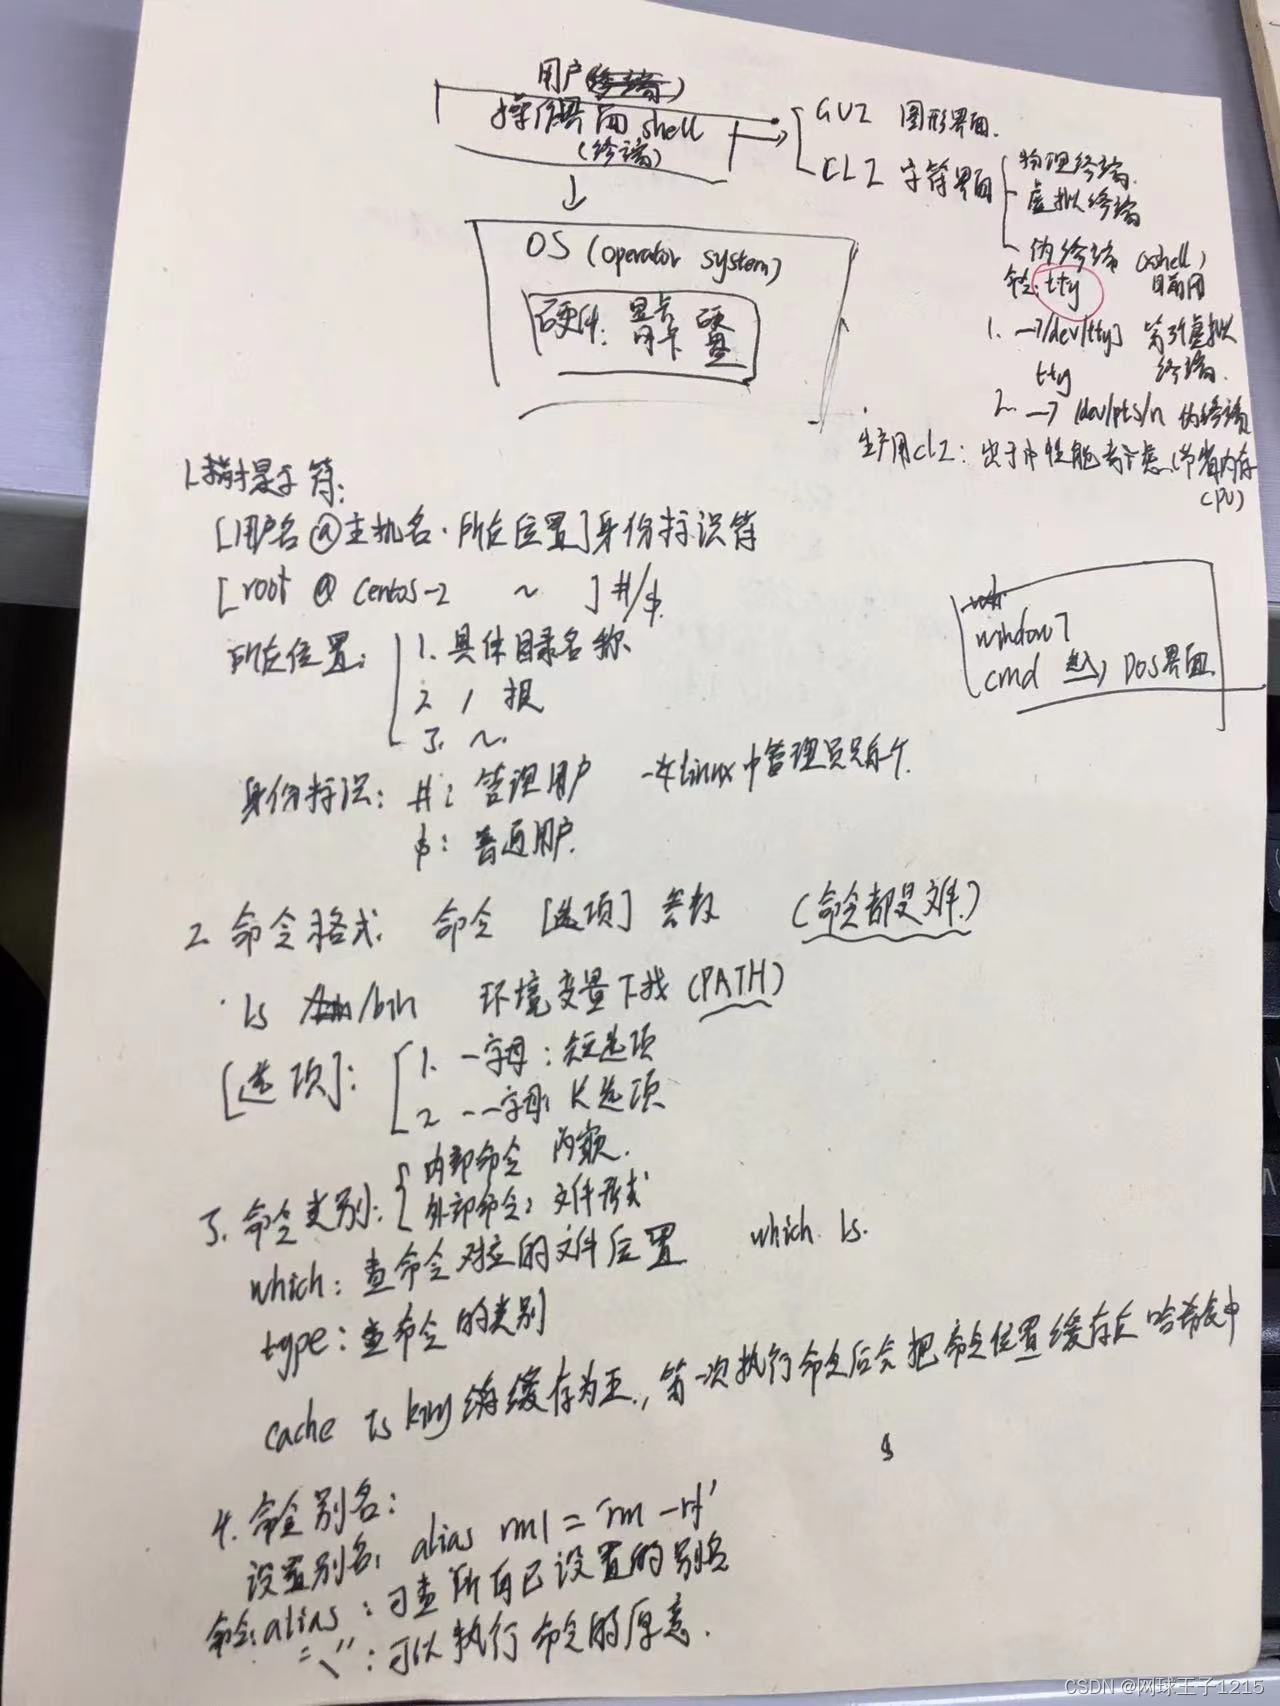 用户
操作界面 shell
(终端)
GUI 图形界面.
CLI 字符界面
物理终端.
虚拟终端
伪终端 (xshell)
目前用
命令: tty
1. →/dev/tty3 第3个虚拟
tty 终端.
2. → /dev/pts/n 伪终端
OS (operator system)
硬件: 显卡 硬
网卡 盘
生产用CLI: 出于性能考虑 (节省内存
CPU)
1. 提示符:
[用户名@主机名·所在位置]身份标识符
[root @ Centos-2 ~ ]#/$
所在位置:
1. 具体目录名称
2. / 根
3. ~.
window7
cmd 进入 DOS界面
身份标识: #: 管理用户 一个Linux中管理员只有一个.
$: 普通用户.
2. 命令格式: 命令 [选项] 参数 (命令都是文件.)
ls /bin 环境变量下找 (PATH)
[选项]:
1. -字母: 短选项
2. --字母: 长选项
3. 命令类别:
内部命令 内嵌.
外部命令: 文件形式
which: 查命令对应的文件位置 which ls.
type: 查命令的类别
cache is king 缓存为王., 第一次执行命令后会把命令位置缓存在哈希表中
4. 命令别名:
设置别名: alias rm1='rm -rf'
命令: alias: 可查所有已设置的别名
"\": 可以执行命令的原意.
CSDN @网球王子1215